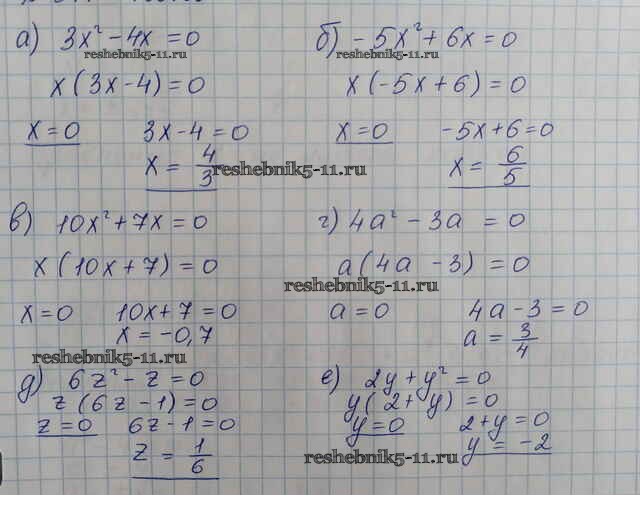 а) 3x² - 4x = 0
reshebnik5-11.ru
x(3x - 4) = 0
x = 0 3x - 4 = 0
x = 4/3
reshebnik5-11.ru
б) -5x² + 6x = 0
reshebnik5-11.ru
x(-5x + 6) = 0
x = 0 -5x + 6 = 0
x = 6/5
в) 10x² + 7x = 0
x(10x + 7) = 0
x = 0 10x + 7 = 0
x = -0,7
reshebnik5-11.ru
г) 4a² - 3a = 0
a(4a - 3) = 0
reshebnik5-11.ru
a = 0 4a - 3 = 0
a = 3/4
д) 6z² - z = 0
z(6z - 1) = 0
z = 0 6z - 1 = 0
z = 1/6
е) 2y + y² = 0
y(2 + y) = 0
y = 0 2 + y = 0
y = -2
reshebnik5-11.ru